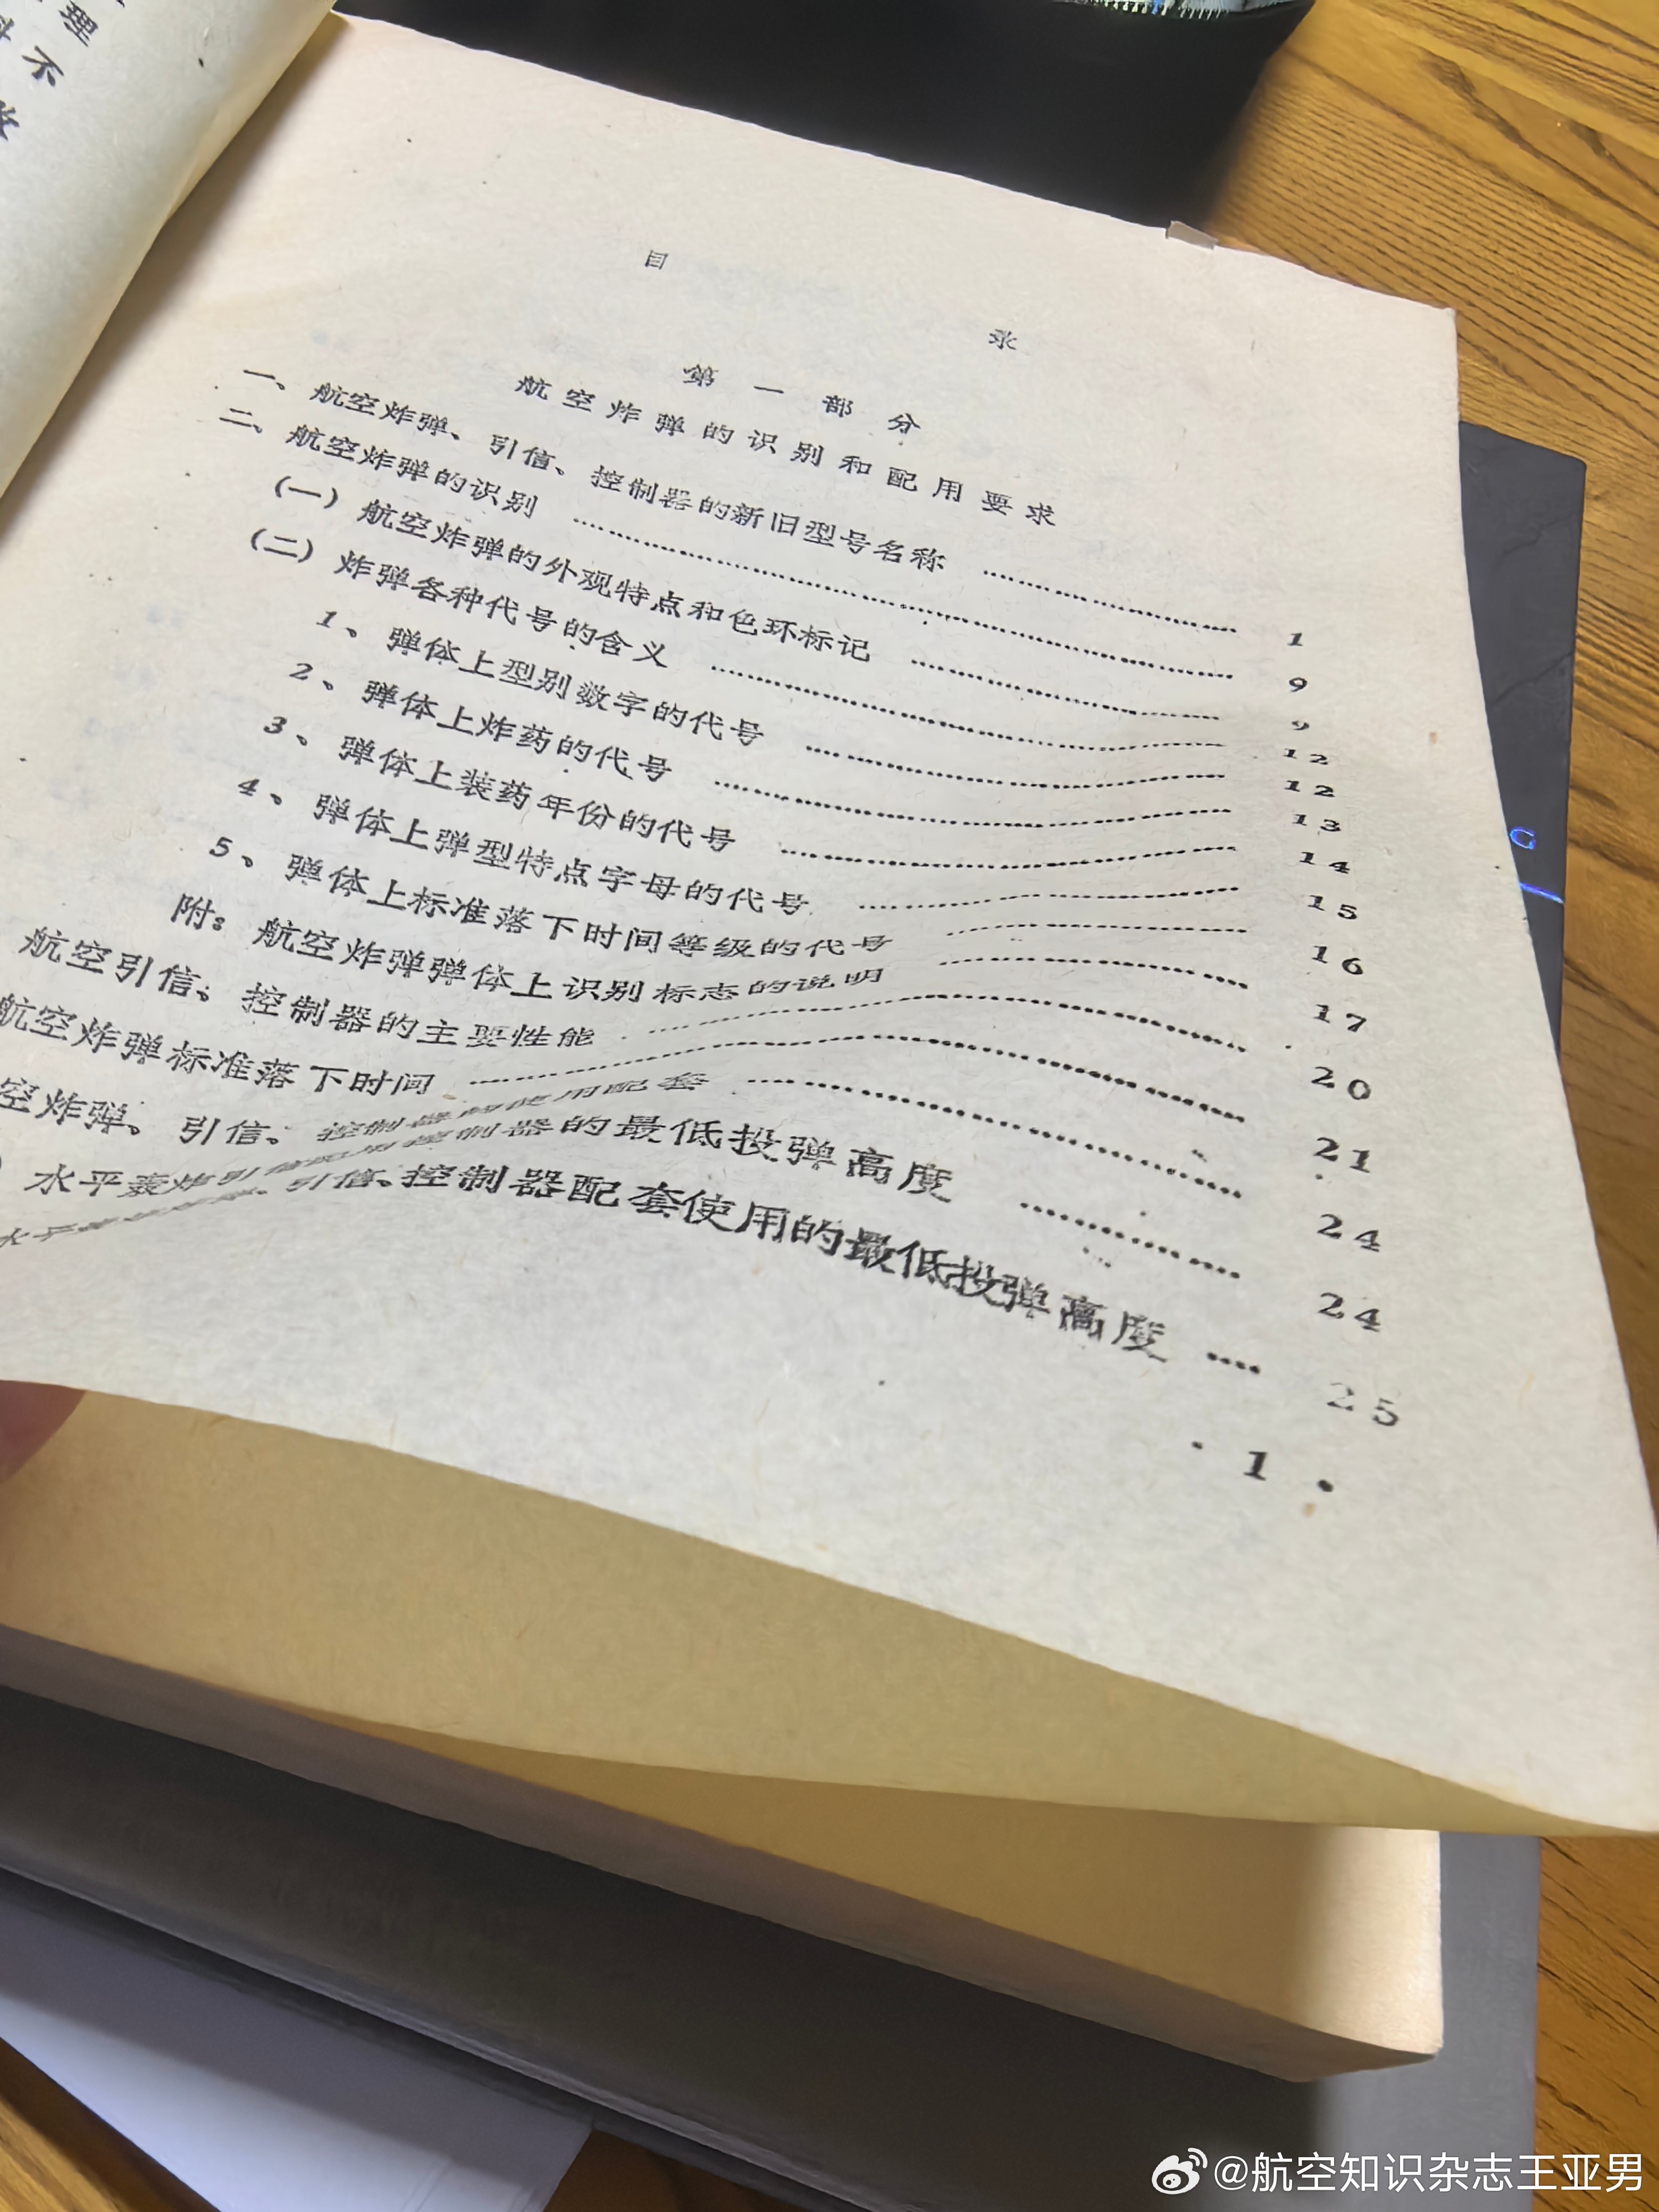 理
不
目 录
第一部分
航空炸弹的识别和配用要求
一、航空炸弹、引信、控制器的新旧型号名称 …… 1
二、航空炸弹的识别 …… 9
(一)航空炸弹的外观特点和色环标记 …… 9
(二)炸弹各种代号的含义 …… 12
1、弹体上型别数字的代号 …… 12
2、弹体上炸药的代号 …… 13
3、弹体上装药年份的代号 …… 14
4、弹体上弹型特点字母的代号 …… 15
5、弹体上标准落下时间等级的代号 …… 16
附:航空炸弹弹体上识别标志的说明 …… 17
航空引信、控制器的主要性能 …… 20
航空炸弹标准落下时间 …… 21
空炸弹、引信、控制器的使用配套 …… 24
)水平轰炸引信配用控制器的最低投弹高度 …… 24
水平 引信、控制器配套使用的最低投弹高度 …… 25
· 1 ·
G
@航空知识杂志王亚男